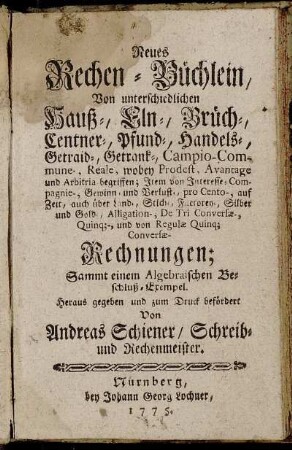 Neues
Rechen-Büchlein,
Von unterschiedlichen
Hauß-, Eln-, Brüch-,
Centner-, Pfund-, Handels-,
Getraid-, Getrank-, Campio-Com-
mune-, Reale, wobey Prodest, Avantage
und Arbitria begriffen; Item von Interesse, Com-
pagnie-, Gewinn- und Verlust-, pro Cento-, auf
Zeit, auch über Land-, Stich-, Factoren-, Silber
und Gold-, Alligation-, De Tri Conversæ-,
Quinq;-, und von Regulæ Quinq;
Conversæ-
Rechnungen;
Sammt einem Algebraischen Be-
schluß-Exempel.
Heraus gegeben und zum Druck befördert
Von
Andreas Schiener/ Schreib-
und Rechenmeister.
Nürnberg,
bey Johann Georg Lochner,
1775.